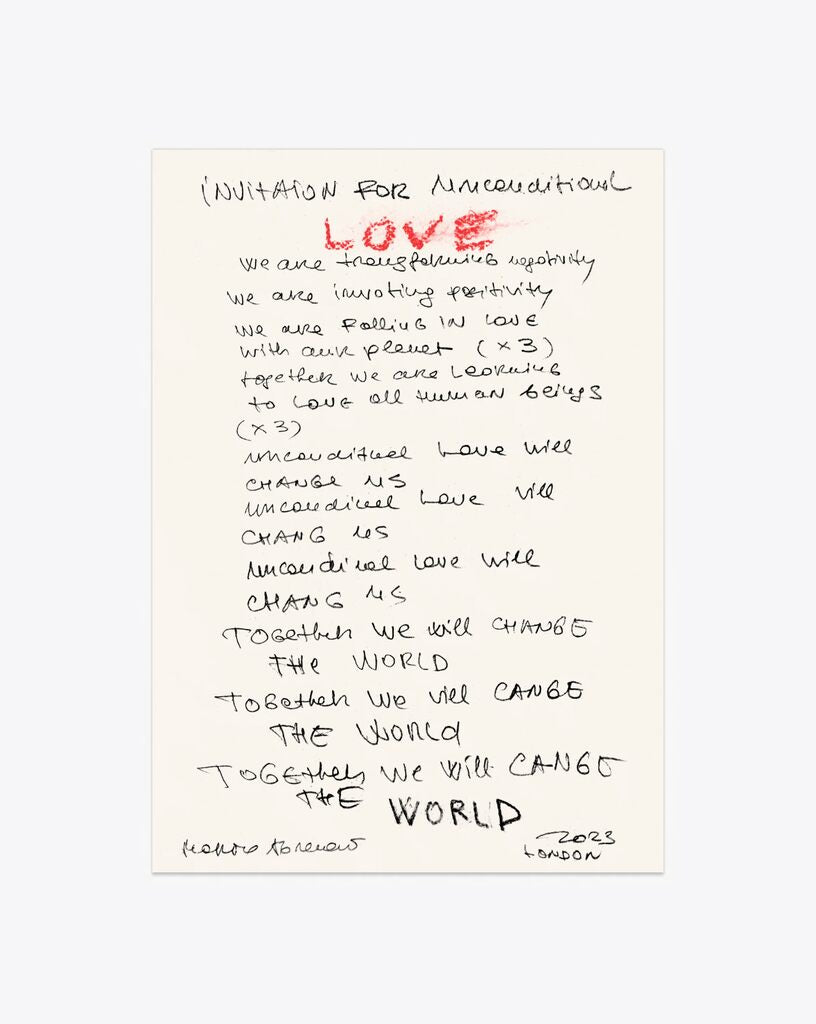 INVITAION FOR unconditional
LOVE
we are transforming negativity
we are invoting positivity
we are falling IN LOVE
with our planet (x3)
together we are Learning
to LOVE all human beings
(x3)
unconditnel Love will
CHANGE US
uncondinel Love vill
CHANG US
uncondinel Love will
CHANG US
TOGether We will CHANGE
THe WORLD
TOGether We vill CANGE
THE WORLd
TOGEther We Will CANGE
THE WORLD
2023
LONDON